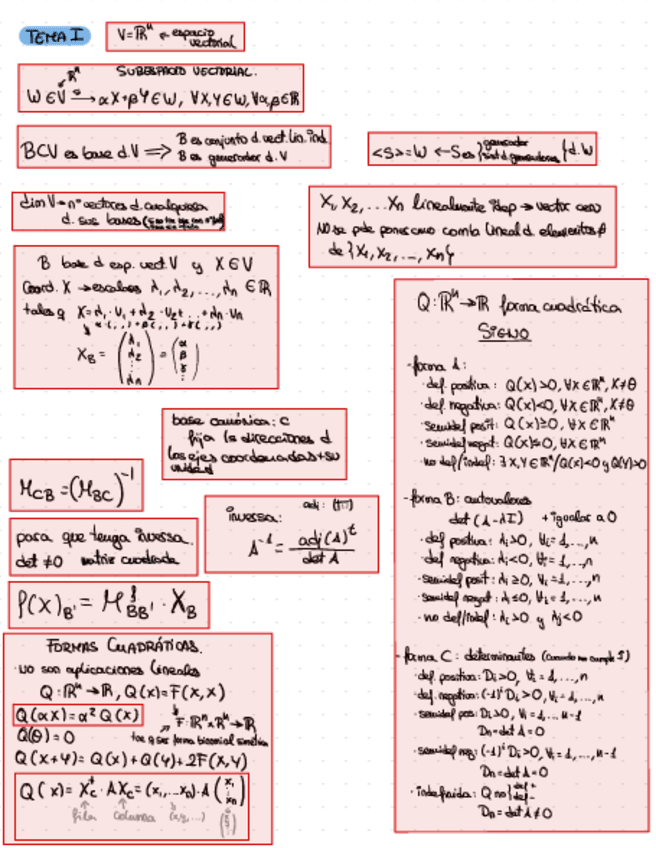 TEMA I
V=ℝⁿ ← espacio vectorial
SUBESPACIO VECTORIAL.
ℝⁿ
W ∈ V → αX+βY ∈ W, ∀X,Y ∈ W, ∀α,β ∈ ℝ
BCV es base d. V ⟹ B es conjunto d. vect. lin. ind.
B es generador d. V
<S> = W ← S es generador sist. d. generadores } d. W
dim V → nº vectores d. cualquiera
d. sus bases
X₁, X₂, ... Xn linealmente idep → vector cero
NO se pde poner como comb lineal d elementos
de {X₁, X₂, ..., Xn}
B base d esp. vect V y X ∈ V
Coord. X → escalares λ₁, λ₂, ..., λn ∈ ℝ
tales q X = λ₁·U₁ + λ₂·U₂ + ... + λn·Un
α(,,) + β(,,) + γ(,,)
X_B = (λ₁ λ₂ ⋮ λn) = (α β γ ⋮)
base canónica: C
fija las direcciones d
los ejes coordenadas + su
unidad
M_CB = (M_BC)⁻¹
inversa:
A⁻¹ = adj(A)ᵗ / det A
para que tenga inversa.
det ≠ 0 matriz cuadrada
f(X)_B' = M^f_BB' · X_B
FORMAS CUADRÁTICAS.
· no son aplicaciones lineales
Q: ℝⁿ → ℝ, Q(x) = F(x,x)
Q(αX) = α² Q(X)
F: ℝⁿ×ℝⁿ → ℝ
Q(θ) = 0
Q(X+Y) = Q(X) + Q(Y) + 2F(X,Y)
Q(X) = X_Cᵗ · A X_C = (x₁,...xn)·A (x₁ ⋮ xn)
fila columna (x,y,...)
Q: ℝⁿ → ℝ forma cuadrática
SIGNO
- forma A:
· def. positiva: Q(x)>0, ∀X ∈ ℝⁿ, X≠θ
· def. negativa: Q(x)<0, ∀X ∈ ℝⁿ, X≠θ
· semidef posit: Q(x)≥0, ∀X ∈ ℝⁿ
· semidef negat: Q(x)≤0, ∀X ∈ ℝⁿ
· no def/indef: ∃ X,Y ∈ ℝⁿ/Q(X)<0 y Q(Y)>0
- forma B: autovalores
det (A-λI) + igualar a 0
· def positiva: λi>0, ∀i=1,...,n
· def negativa: λi<0, ∀i=1,...,n
· semidef posit: λi≥0, ∀i=1,...,n
· semidef negat: λi≤0, ∀i=1,...,n
· no def/indef: λi>0 y λj<0
- forma C: determinantes
· def. positiva: Di>0, ∀i=1,...,n
· def. negativa: (-1)ⁱ Di>0, ∀i=1,...,n
· semidef pos: Di>0, ∀i=1,...n-1
Dn=det A=0
· semidef neg: (-1)ⁱ Di>0, ∀i=1,...,n-1
Dn=det A=0
· indefinida: Q no } def + def -
Dn=det A≠0